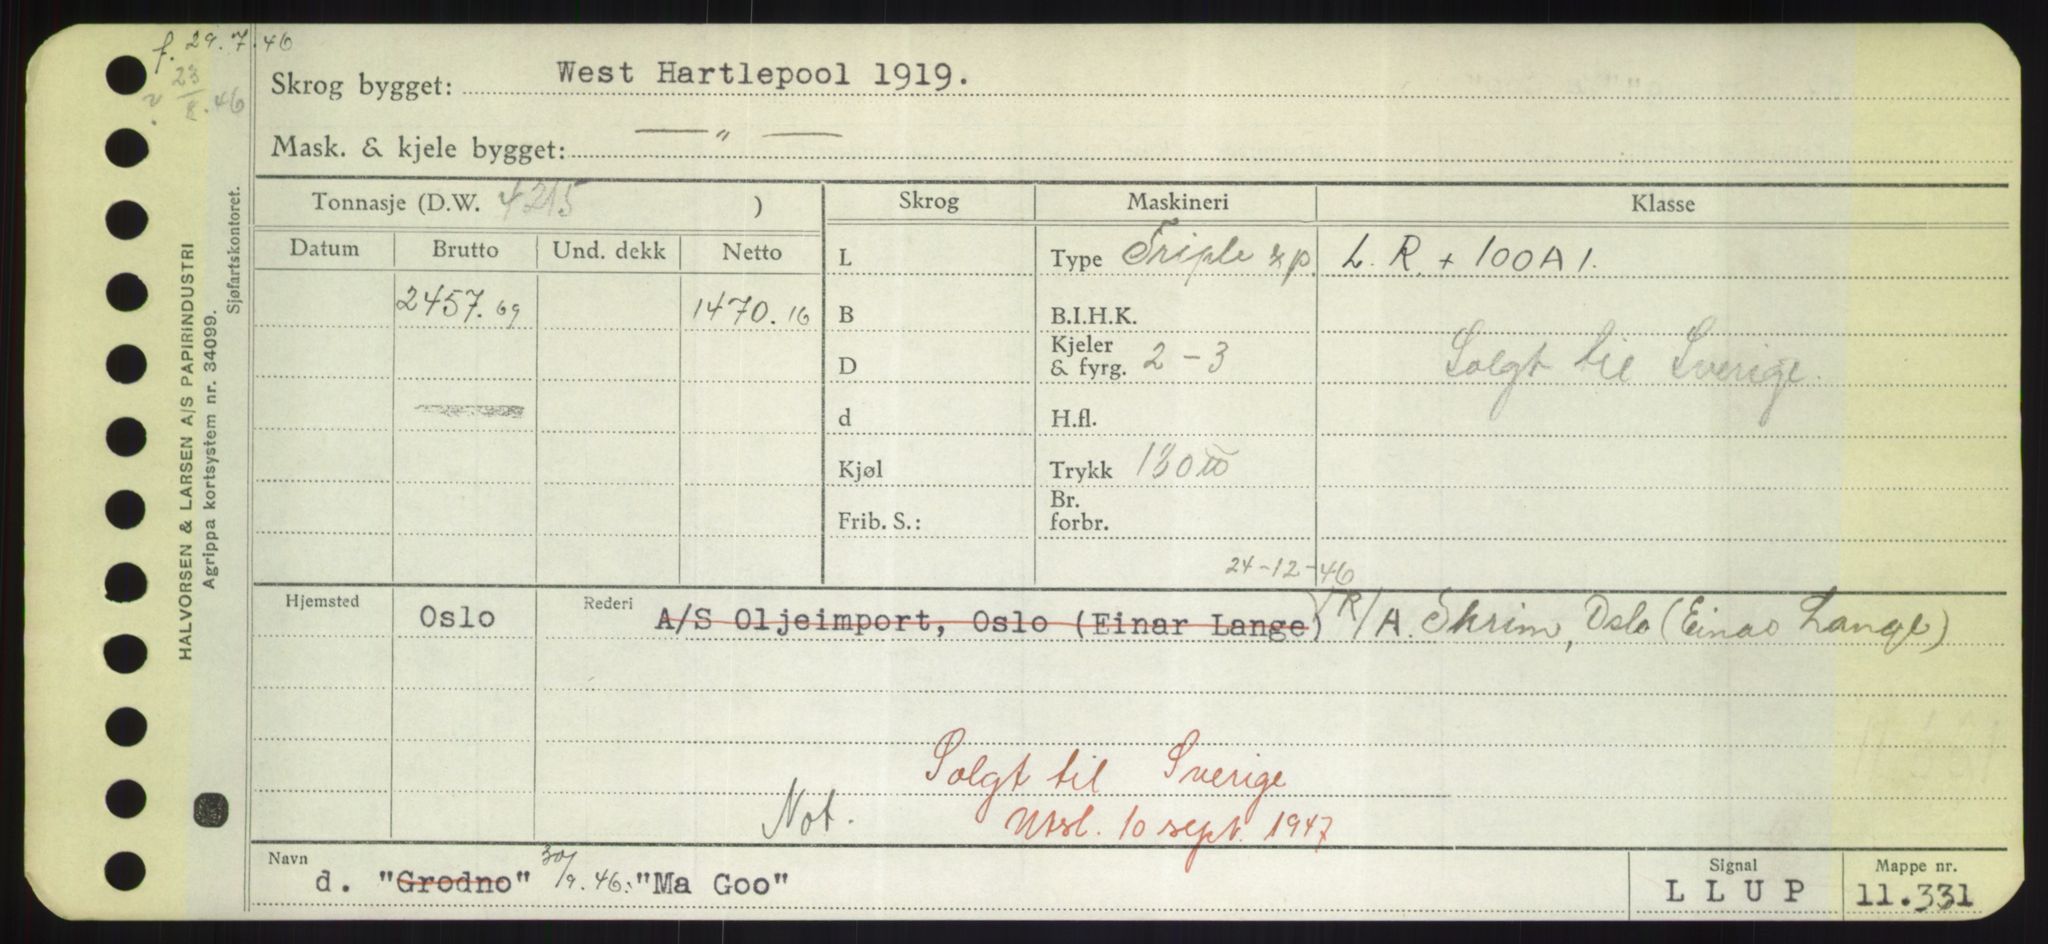 f. 29.7.46
23/8.46
Skrog bygget: West Hartlepool 1919.
Mask. & kjele bygget: — " —
HALVORSEN & LARSEN A/S PAPIRINDUSTRI
Agrippa kortsystem nr. 34099.
Sjøfartskontoret.
Tonnasje (D.W. 4215 ) Skrog Maskineri Klasse
Datum Brutto Und. dekk Netto L Type Triple xp. L. R. + 100 A 1.
2457.69 1470.16 B B.I.H.K.
D Kjeler & fyrg. 2 - 3 Solgt til Sverige
d H.fl.
Kjøl Trykk 180
Frib. S.: Br. forbr.
24-12-46
Hjemsted Oslo Rederi A/S Oljeimport, Oslo (Einar Lange) R/A. Skrim, Oslo (Einar Lange)
Solgt til Sverige
Not. Utsl. 10 sept. 1947
Navn Signal Mappe nr.
d. "Grodno" 30/9.46: "Ma Goo" LLUP 11.331